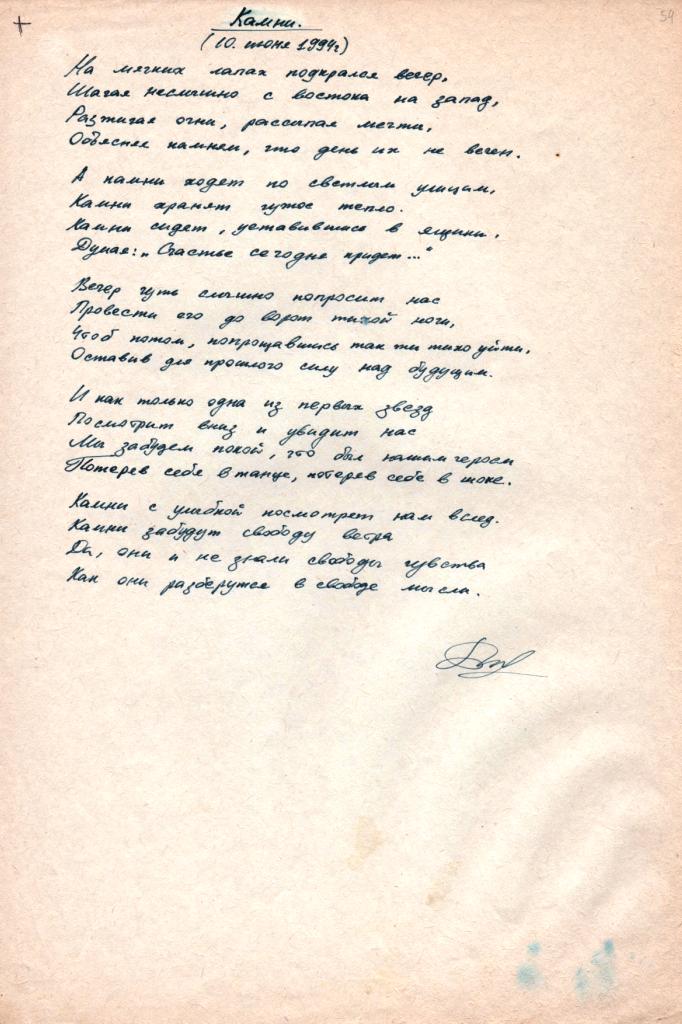 54
+
Камни.
(10. июня 1994г)
На мягких лапах подкрался вечер,
Шагая неслышно с востока на запад,
Разжигая огни, рассыпая мечты,
Объясняя камням, что день их не вечен.
А камни ходят по светлым улицам,
Камни хранят чужое тепло.
Камни сидят, уставившись в ящики,
Думая: „Счастье сегодня придет..."
Вечер чуть слышно попросит нас
Провести его до ворот тихой ночи,
Чтоб потом, попрощавшись так тихо уйти,
Оставив для прошлого силу над будущим.
И как только одна из первых звезд
Посмотрит вниз и увидит нас
Мы забудем покой, что был нашим героем
Потеряв себя в танце, потеряв себя в шоке.
Камни с улыбкой посмотрят нам вслед.
Камни забудут свободу ветра
Да, они и не знали свободы чувства
Как они разберутся в свободе мысли.